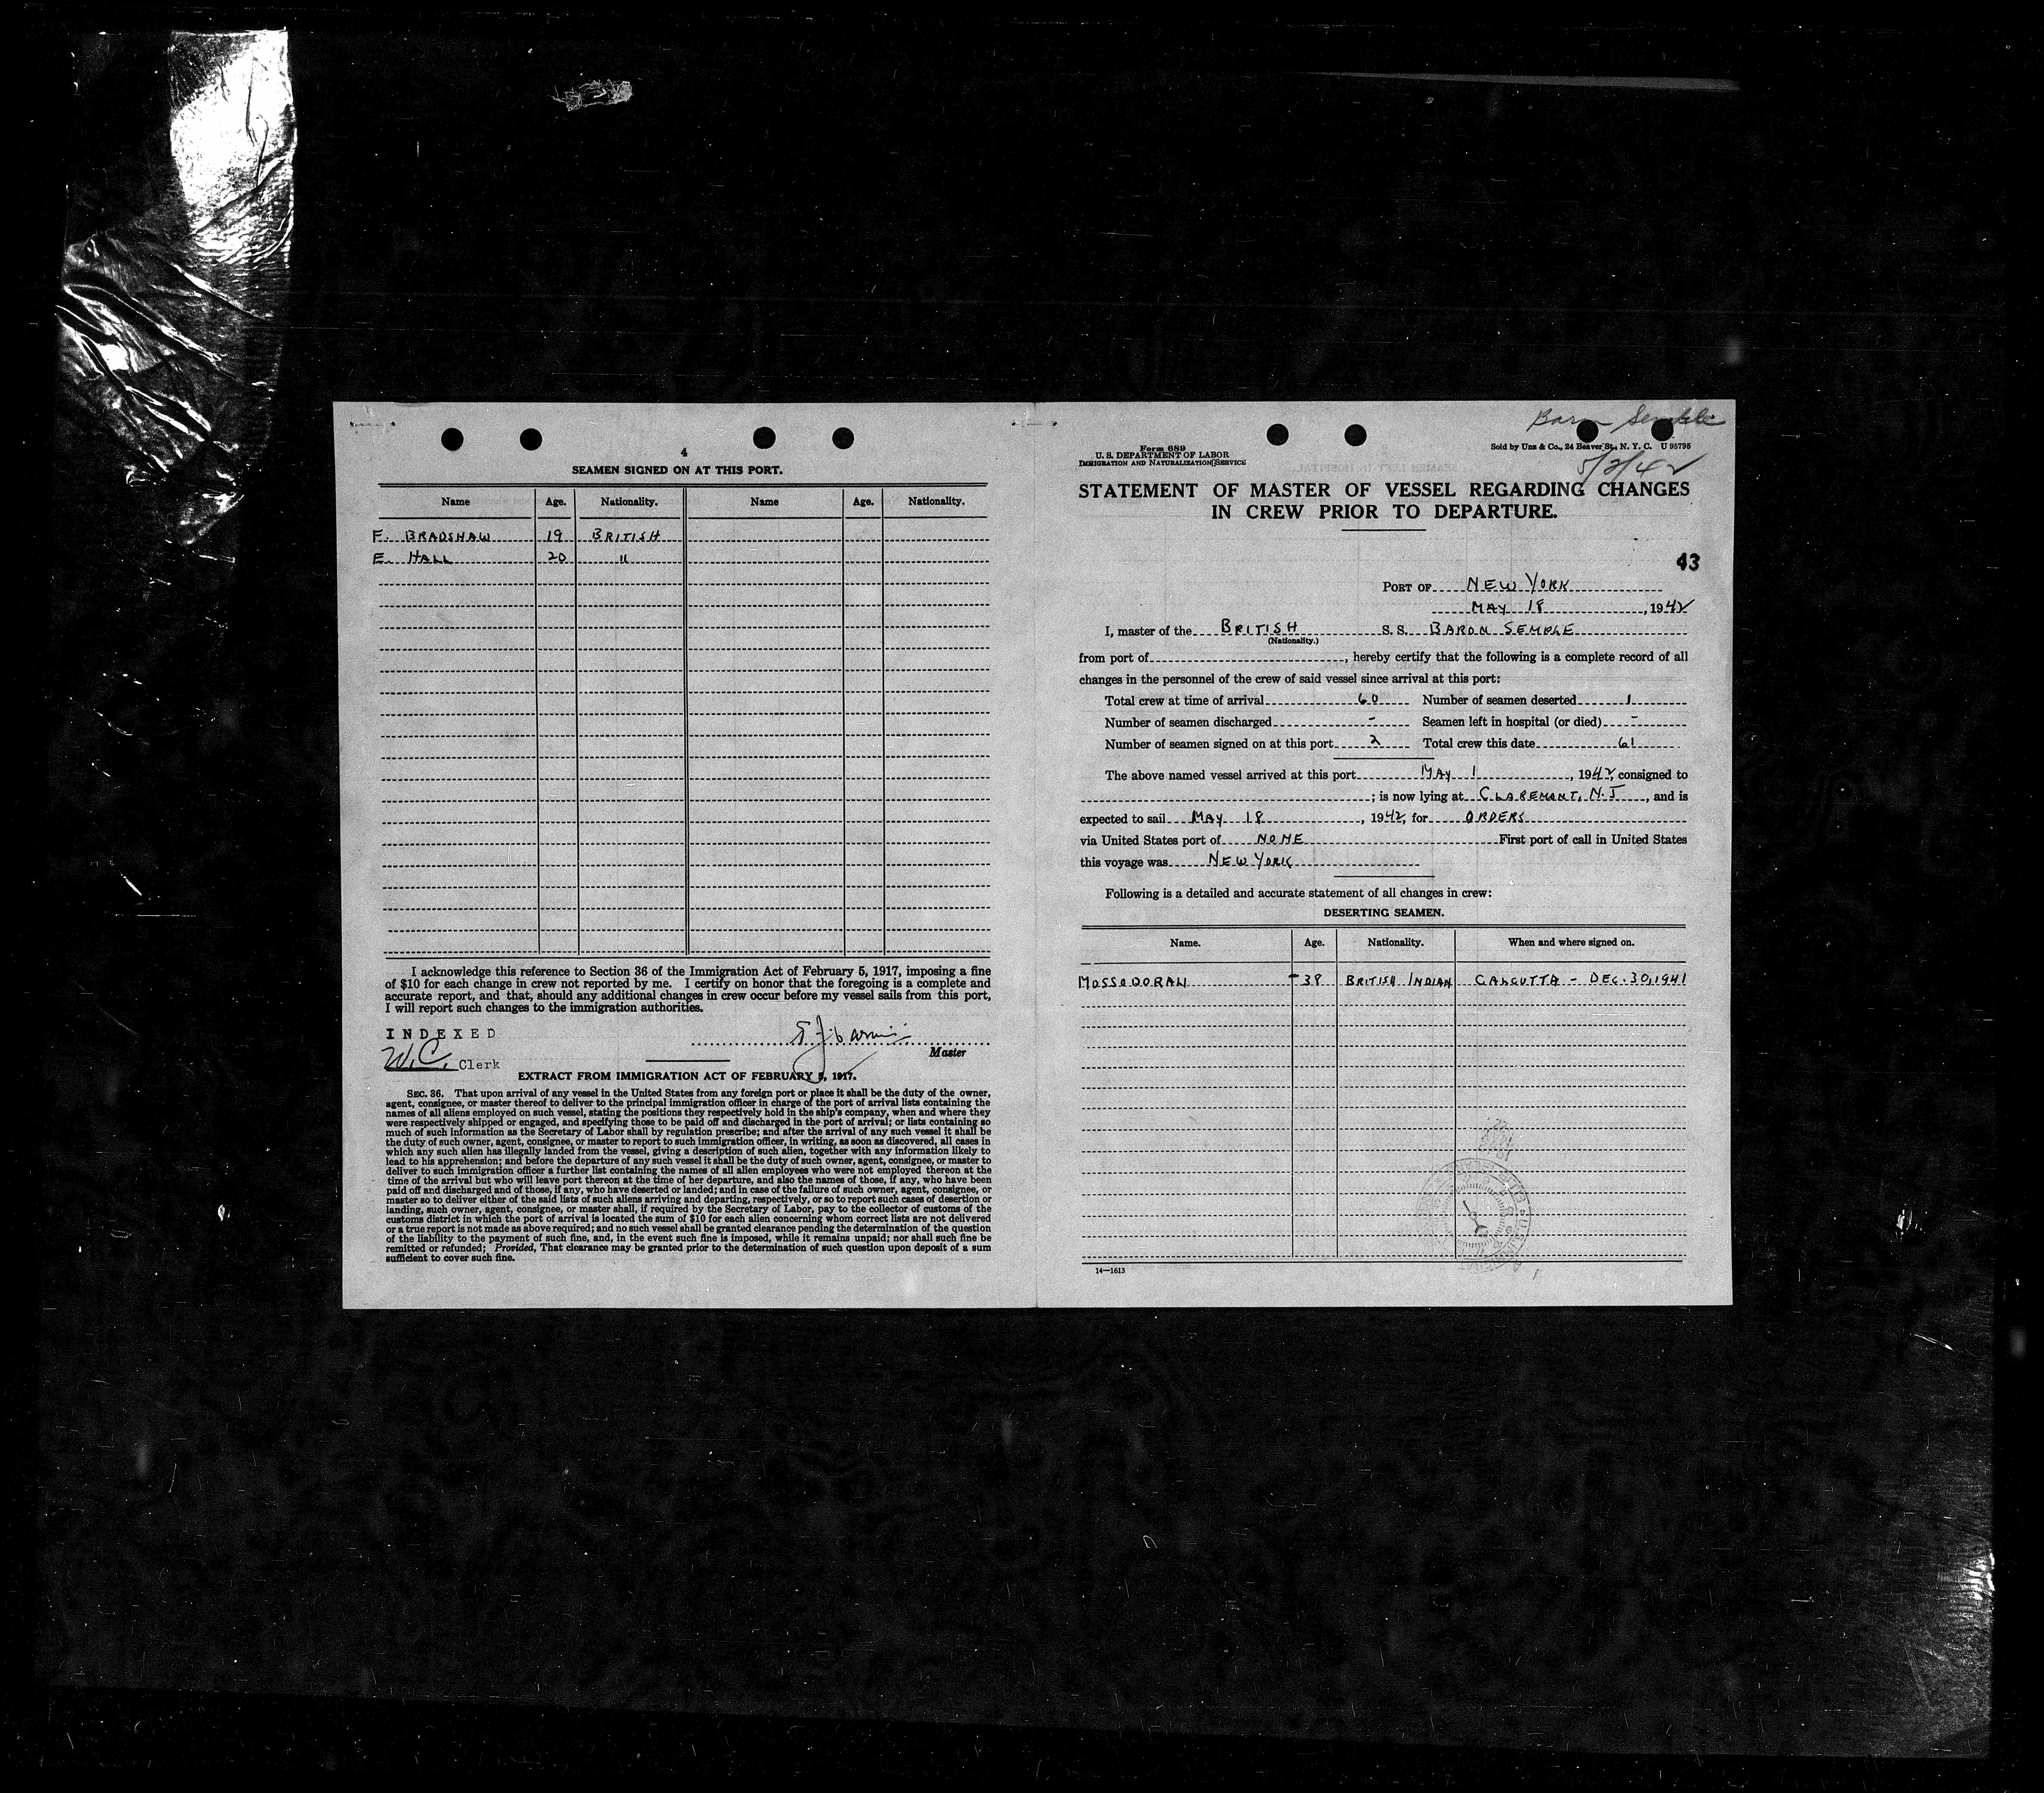 4
SEAMEN SIGNED ON AT THIS PORT.
Name Age. Nationality. Name Age. Nationality.
F. BRADSHAW 19 BRITISH
E. HALL 20 "
I acknowledge this reference to Section 36 of the Immigration Act of February 5, 1917, imposing a fine
of $10 for each change in crew not reported by me. I certify on honor that the foregoing is a complete and
accurate report, and that, should any additional changes in crew occur before my vessel sails from this port,
I will report such changes to the immigration authorities.
INDEXED
W.C. Clerk
Master
EXTRACT FROM IMMIGRATION ACT OF FEBRUARY 5, 1917.
SEC. 36. That upon arrival of any vessel in the United States from any foreign port or place it shall be the duty of the owner,
agent, consignee, or master thereof to deliver to the principal immigration officer in charge of the port of arrival lists containing the
names of all aliens employed on such vessel, stating the positions they respectively hold in the ship's company, when and where they
were respectively shipped or engaged, and specifying those to be paid off and discharged in the port of arrival; or lists containing so
much of such information as the Secretary of Labor shall by regulation prescribe; and after the arrival of any such vessel it shall be
the duty of such owner, agent, consignee, or master to report to such immigration officer, in writing, as soon as discovered, all cases in
which any such alien has illegally landed from the vessel, giving a description of such alien, together with any information likely to
lead to his apprehension; and before the departure of any such vessel it shall be the duty of such owner, agent, consignee, or master to
deliver to such immigration officer a further list containing the names of all alien employees who were not employed thereon at the
time of the arrival but who will leave port thereon at the time of her departure, and also the names of those, if any, who have been
paid off and discharged and of those, if any, who have deserted or landed; and in case of the failure of such owner, agent, consignee, or
master so to deliver either of the said lists of such aliens arriving and departing, respectively, or so to report such cases of desertion or
landing, such owner, agent, consignee, or master shall, if required by the Secretary of Labor, pay to the collector of customs of the
customs district in which the port of arrival is located the sum of $10 for each alien concerning whom correct lists are not delivered
or a true report is not made as above required; and no such vessel shall be granted clearance pending the determination of the question
of the liability to the payment of such fine, and, in the event such fine is imposed, while it remains unpaid; nor shall such fine be
remitted or refunded; Provided, That clearance may be granted prior to the determination of such question upon deposit of a sum
sufficient to cover such fine.
Baron Semple
Form 689
U. S. DEPARTMENT OF LABOR
IMMIGRATION AND NATURALIZATION SERVICE
Sold by Unz & Co., 24 Beaver St., N. Y. C. U 95795
STATEMENT OF MASTER OF VESSEL REGARDING CHANGES
IN CREW PRIOR TO DEPARTURE.
43
PORT OF NEW YORK
MAY 18, 1942
I, master of the BRITISH S. S. BARON SEMPLE
(Nationality.)
from port of , hereby certify that the following is a complete record of all
changes in the personnel of the crew of said vessel since arrival at this port:
Total crew at time of arrival 60 Number of seamen deserted 1
Number of seamen discharged - Seamen left in hospital (or died) -
Number of seamen signed on at this port 2 Total crew this date 61
The above named vessel arrived at this port MAY 1, 1942, consigned to
; is now lying at CLAREMONT, N.J, and is
expected to sail MAY 18, 1942, for ORDERS
via United States port of NONE First port of call in United States
this voyage was NEW YORK
Following is a detailed and accurate statement of all changes in crew:
DESERTING SEAMEN.
Name. Age. Nationality. When and where signed on.
38 BRITISH INDIAN CALCUTTA - DEC. 30, 1941
14—1613